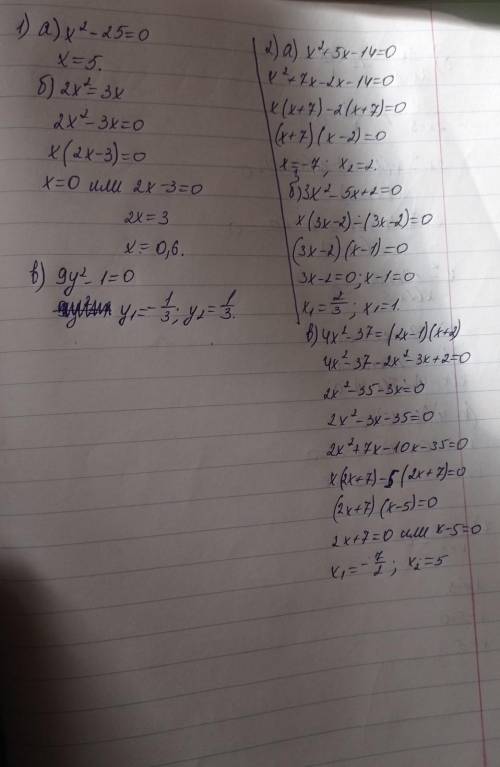 1) а) x² - 25 = 0
x = 5.
б) 2x² = 3x
2x² - 3x = 0
x(2x-3) = 0
x = 0 или 2x - 3 = 0
2x = 3
x = 0,6.
в) 9y² - 1 = 0
y₁ = -1/3; y₂ = 1/3.
2) а) x² + 5x - 14 = 0
x² + 7x - 2x - 14 = 0
x(x+7) - 2(x+7) = 0
(x+7)(x-2) = 0
x = -7; x₂ = 2.
б) 3x² - 5x + 2 = 0
x(3x-2) - (3x-2) = 0
(3x-2)(x-1) = 0
3x - 2 = 0; x - 1 = 0
x₁ = 2/3; x₁ = 1.
в) 4x² - 37 = (2x-1)(x+2)
4x² - 37 - 2x² - 3x + 2 = 0
2x² - 35 - 3x = 0
2x² - 3x - 35 = 0
2x² + 7x - 10x - 35 = 0
x(2x+7) - 5(2x+7) = 0
(2x+7)(x-5) = 0
2x + 7 = 0 или x - 5 = 0
x₁ = -7/2; x₂ = 5